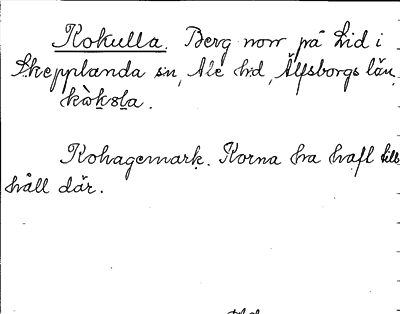 Kokulla. Berg norr på Lid i
Skepplanda sn, Ale hd, Älfsborgs län.
kòkəla.
Kohagemark. Korna ha haft tills
håll där.